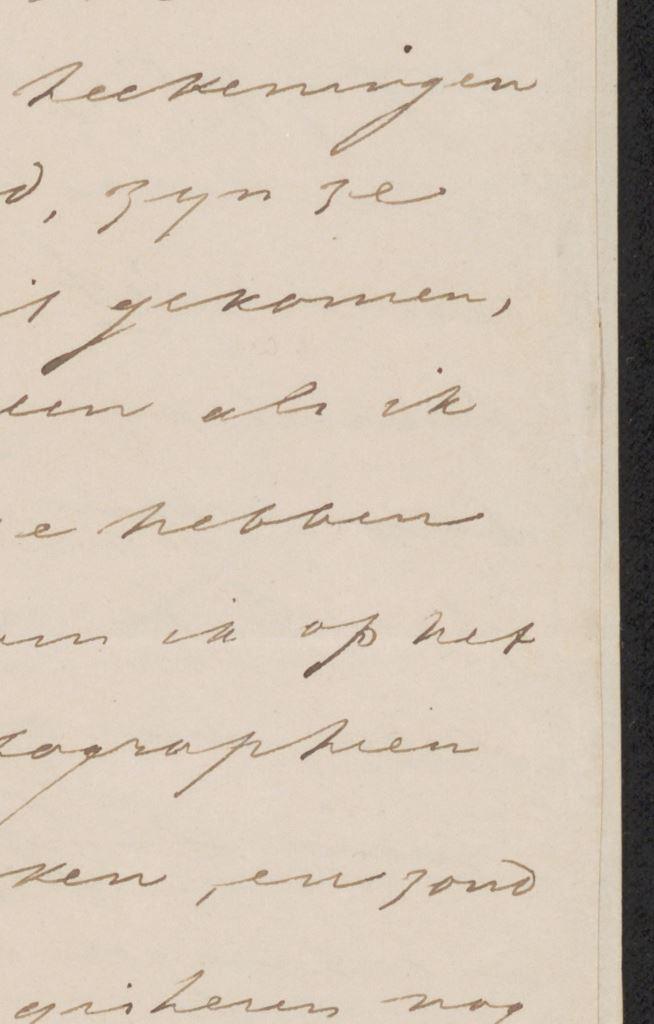 teekeningen
d, zyn ze
it gekomen,
een als ik
e hebben
am ik op het
tographien
ken, en zond
gisteren nog